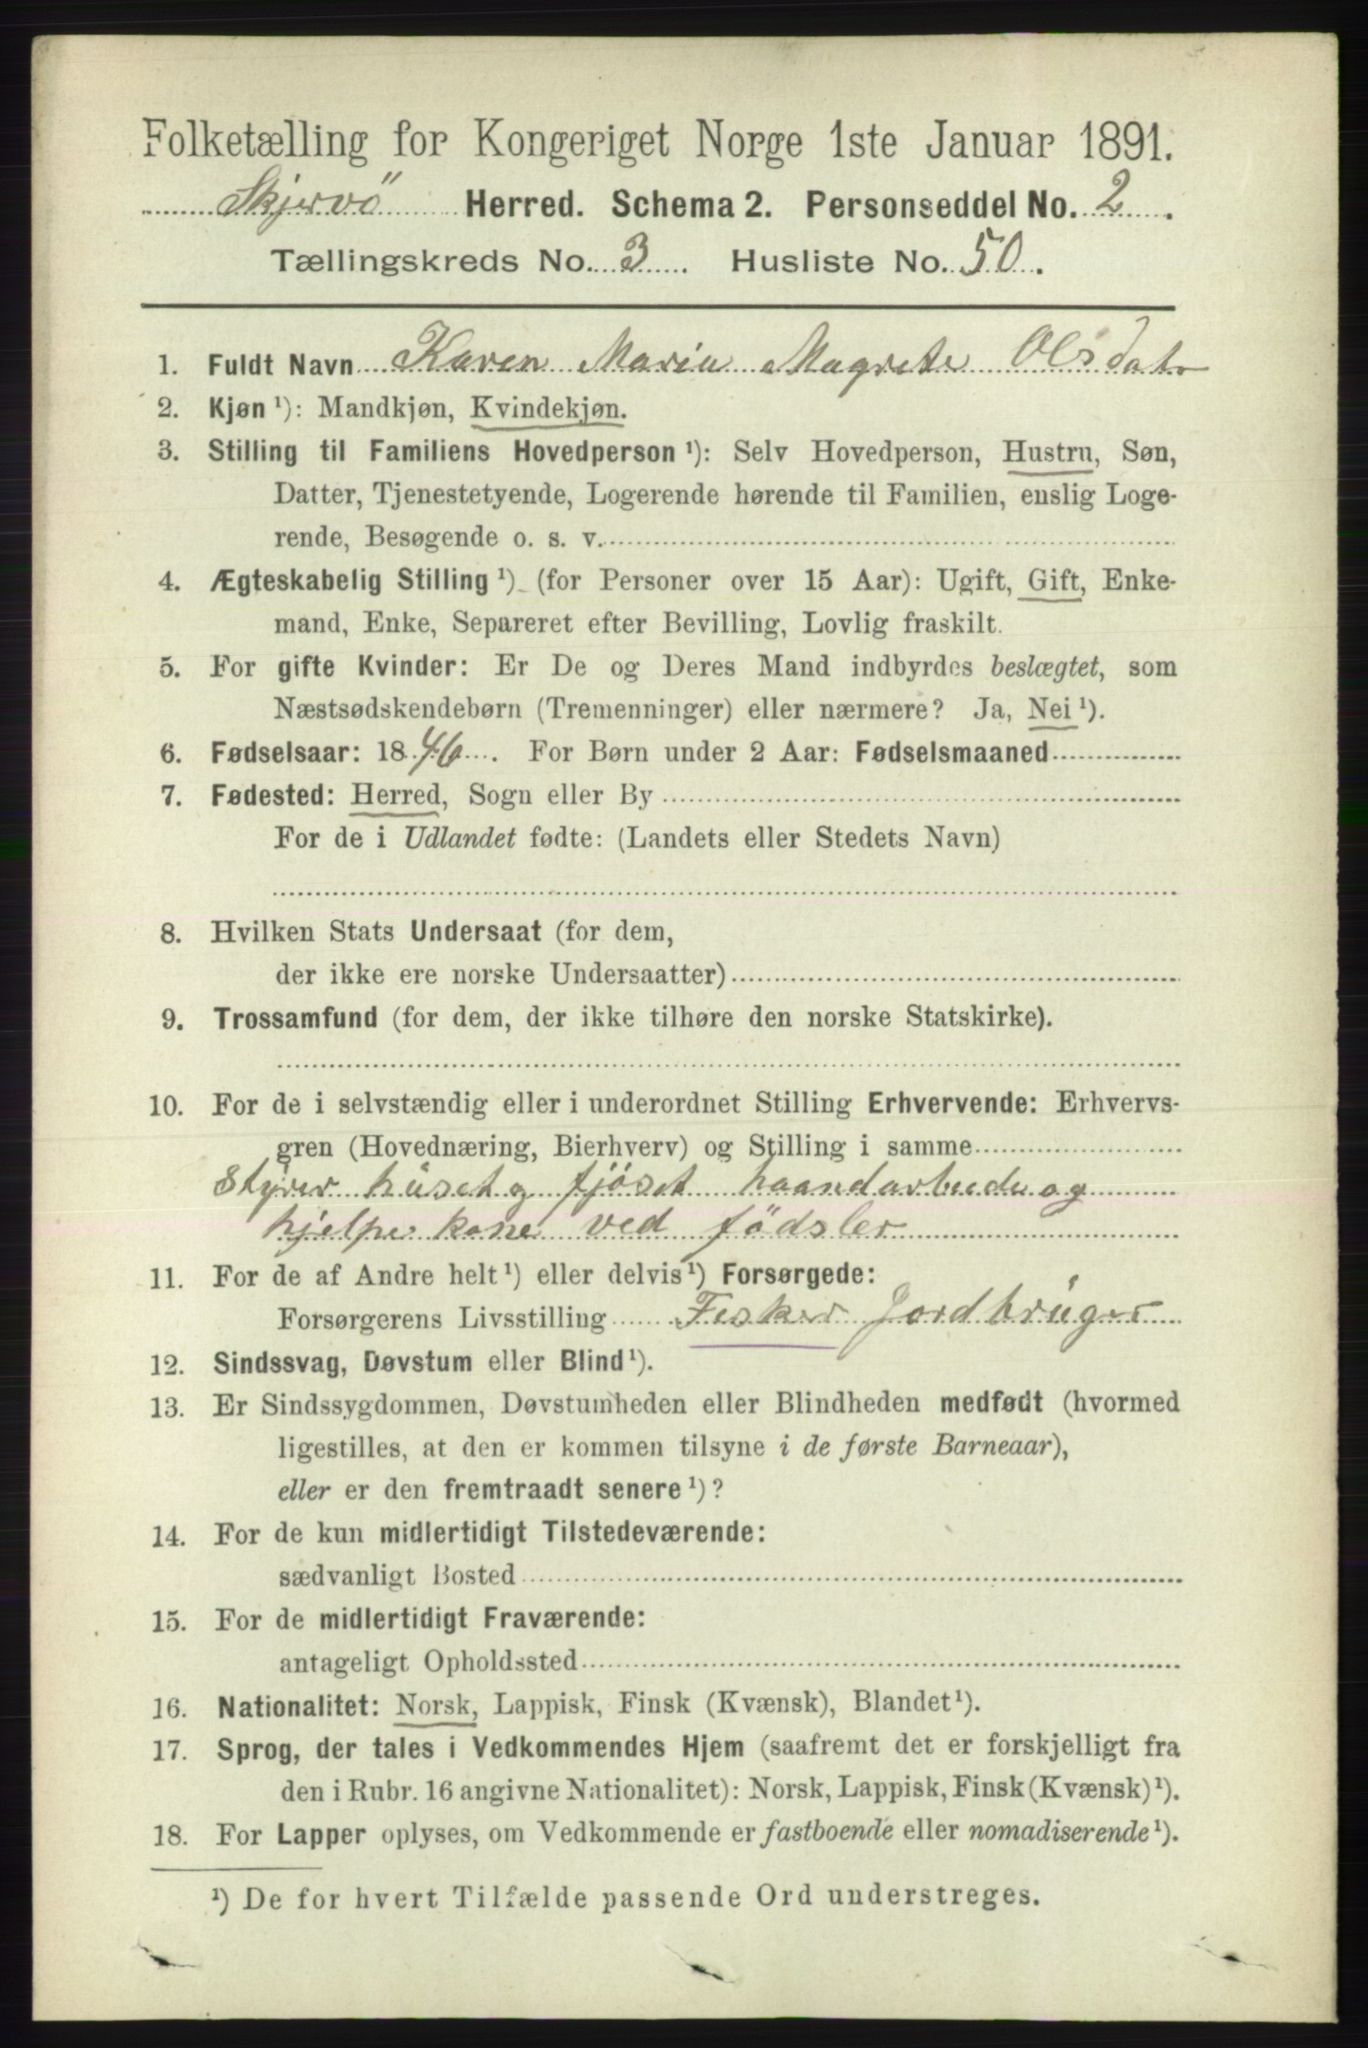 Folketælling for Kongeriget Norge 1ste Januar 1891.
Skjervö Herred. Schema 2. Personseddel No. 2.
Tællingskreds No. 3. Husliste No. 50.
1. Fuldt Navn Karen Maria Magrete Olsdatr
2. Kjøn ¹): Mandkjøn, Kvindekjøn.
3. Stilling til Familiens Hovedperson ¹): Selv Hovedperson, Hustru, Søn,
Datter, Tjenestetyende, Logerende hørende til Familien, enslig Loge-
rende, Besøgende o. s. v.
4. Ægteskabelig Stilling ¹) (for Personer over 15 Aar): Ugift, Gift, Enke-
mand, Enke, Separeret efter Bevilling, Lovlig fraskilt.
5. For gifte Kvinder: Er De og Deres Mand indbyrdes beslægtet, som
Næstsødskendebørn (Tremenninger) eller nærmere? Ja, Nei ¹).
6. Fødselsaar: 1846. For Børn under 2 Aar: Fødselsmaaned
7. Fødested: Herred, Sogn eller By
For de i Udlandet fødte: (Landets eller Stedets Navn)
8. Hvilken Stats Undersaat (for dem,
der ikke ere norske Undersaatter)
9. Trossamfund (for dem, der ikke tilhøre den norske Statskirke).
10. For de i selvstændig eller i underordnet Stilling Erhvervende: Erhvervs-
gren (Hovednæring, Bierhverv) og Stilling i samme
Styrer huset og fjöset haandarbeide og
hjelpe kone ved födsler
11. For de af Andre helt ¹) eller delvis ¹) Forsørgede:
Forsørgerens Livsstilling Fisker Jordbrüger
12. Sindssvag, Døvstum eller Blind ¹).
13. Er Sindssygdommen, Døvstumheden eller Blindheden medfødt (hvormed
ligestilles, at den er kommen tilsyne i de første Barneaar),
eller er den fremtraadt senere ¹)?
14. For de kun midlertidigt Tilstedeværende:
sædvanligt Bosted
15. For de midlertidigt Fraværende:
antageligt Opholdssted
16. Nationalitet: Norsk, Lappisk, Finsk (Kvænsk), Blandet ¹).
17. Sprog, der tales i Vedkommendes Hjem (saafremt det er forskjelligt fra
den i Rubr. 16 angivne Nationalitet): Norsk, Lappisk, Finsk (Kvænsk) ¹).
18. For Lapper oplyses, om Vedkommende er fastboende eller nomadiserende ¹).
¹) De for hvert Tilfælde passende Ord understreges.